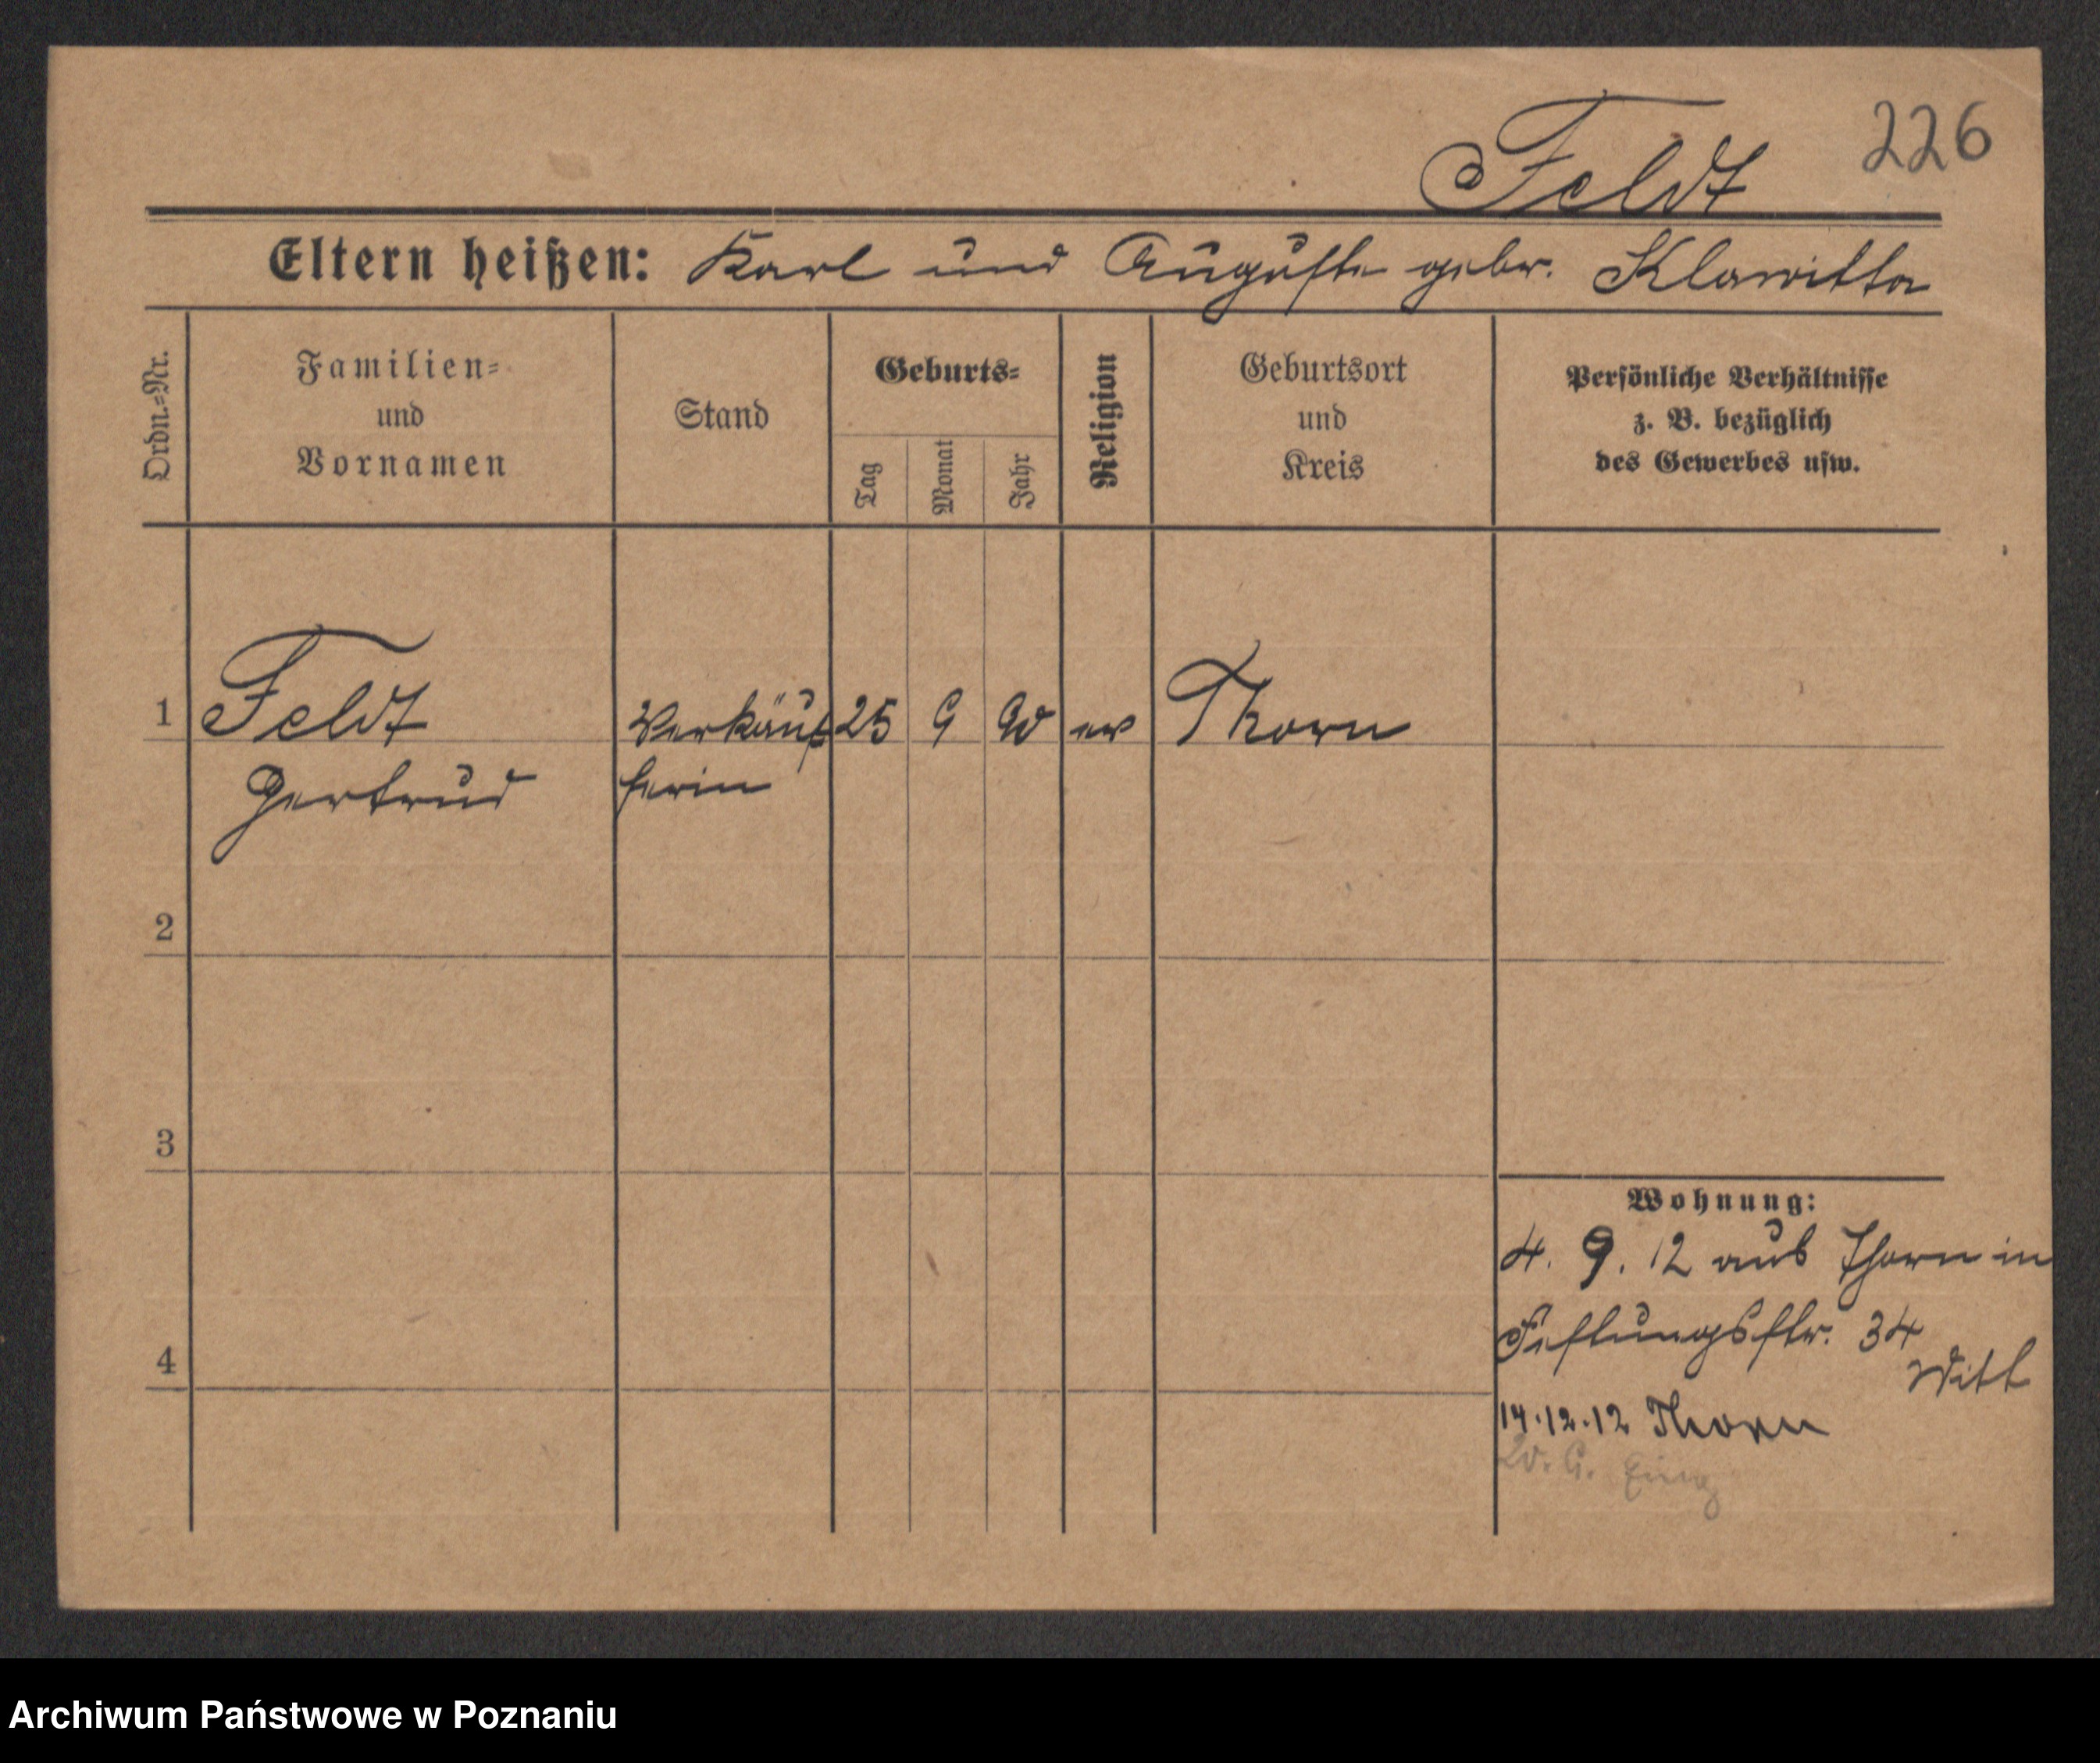 226
Feldt
Eltern heißen: Karl und Auguste gebr. Klawitter
Ordn.=Nr.
Familien=
und
Vornamen
Stand
Geburts=
Tag
Monat
Jahr
Religion
Geburtsort
und
Kreis
Persönliche Verhältnisse
z. B. bezüglich
des Gewerbes usw.
1 Feldt Verkäuf 25 9 90 ev Thorn
Gertrud ferin
2
3
4
Wohnung:
4. 9. 12 aus Thorn in
Festungsstr. 34
Witt
14.12.12 Thorn
Archiwum Państwowe w Poznaniu